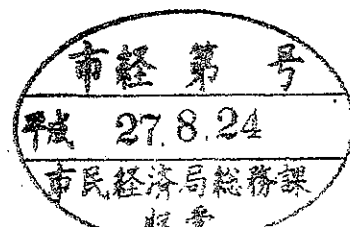 市経第 号
平成 27.8.24
市民経済局総務課
収受